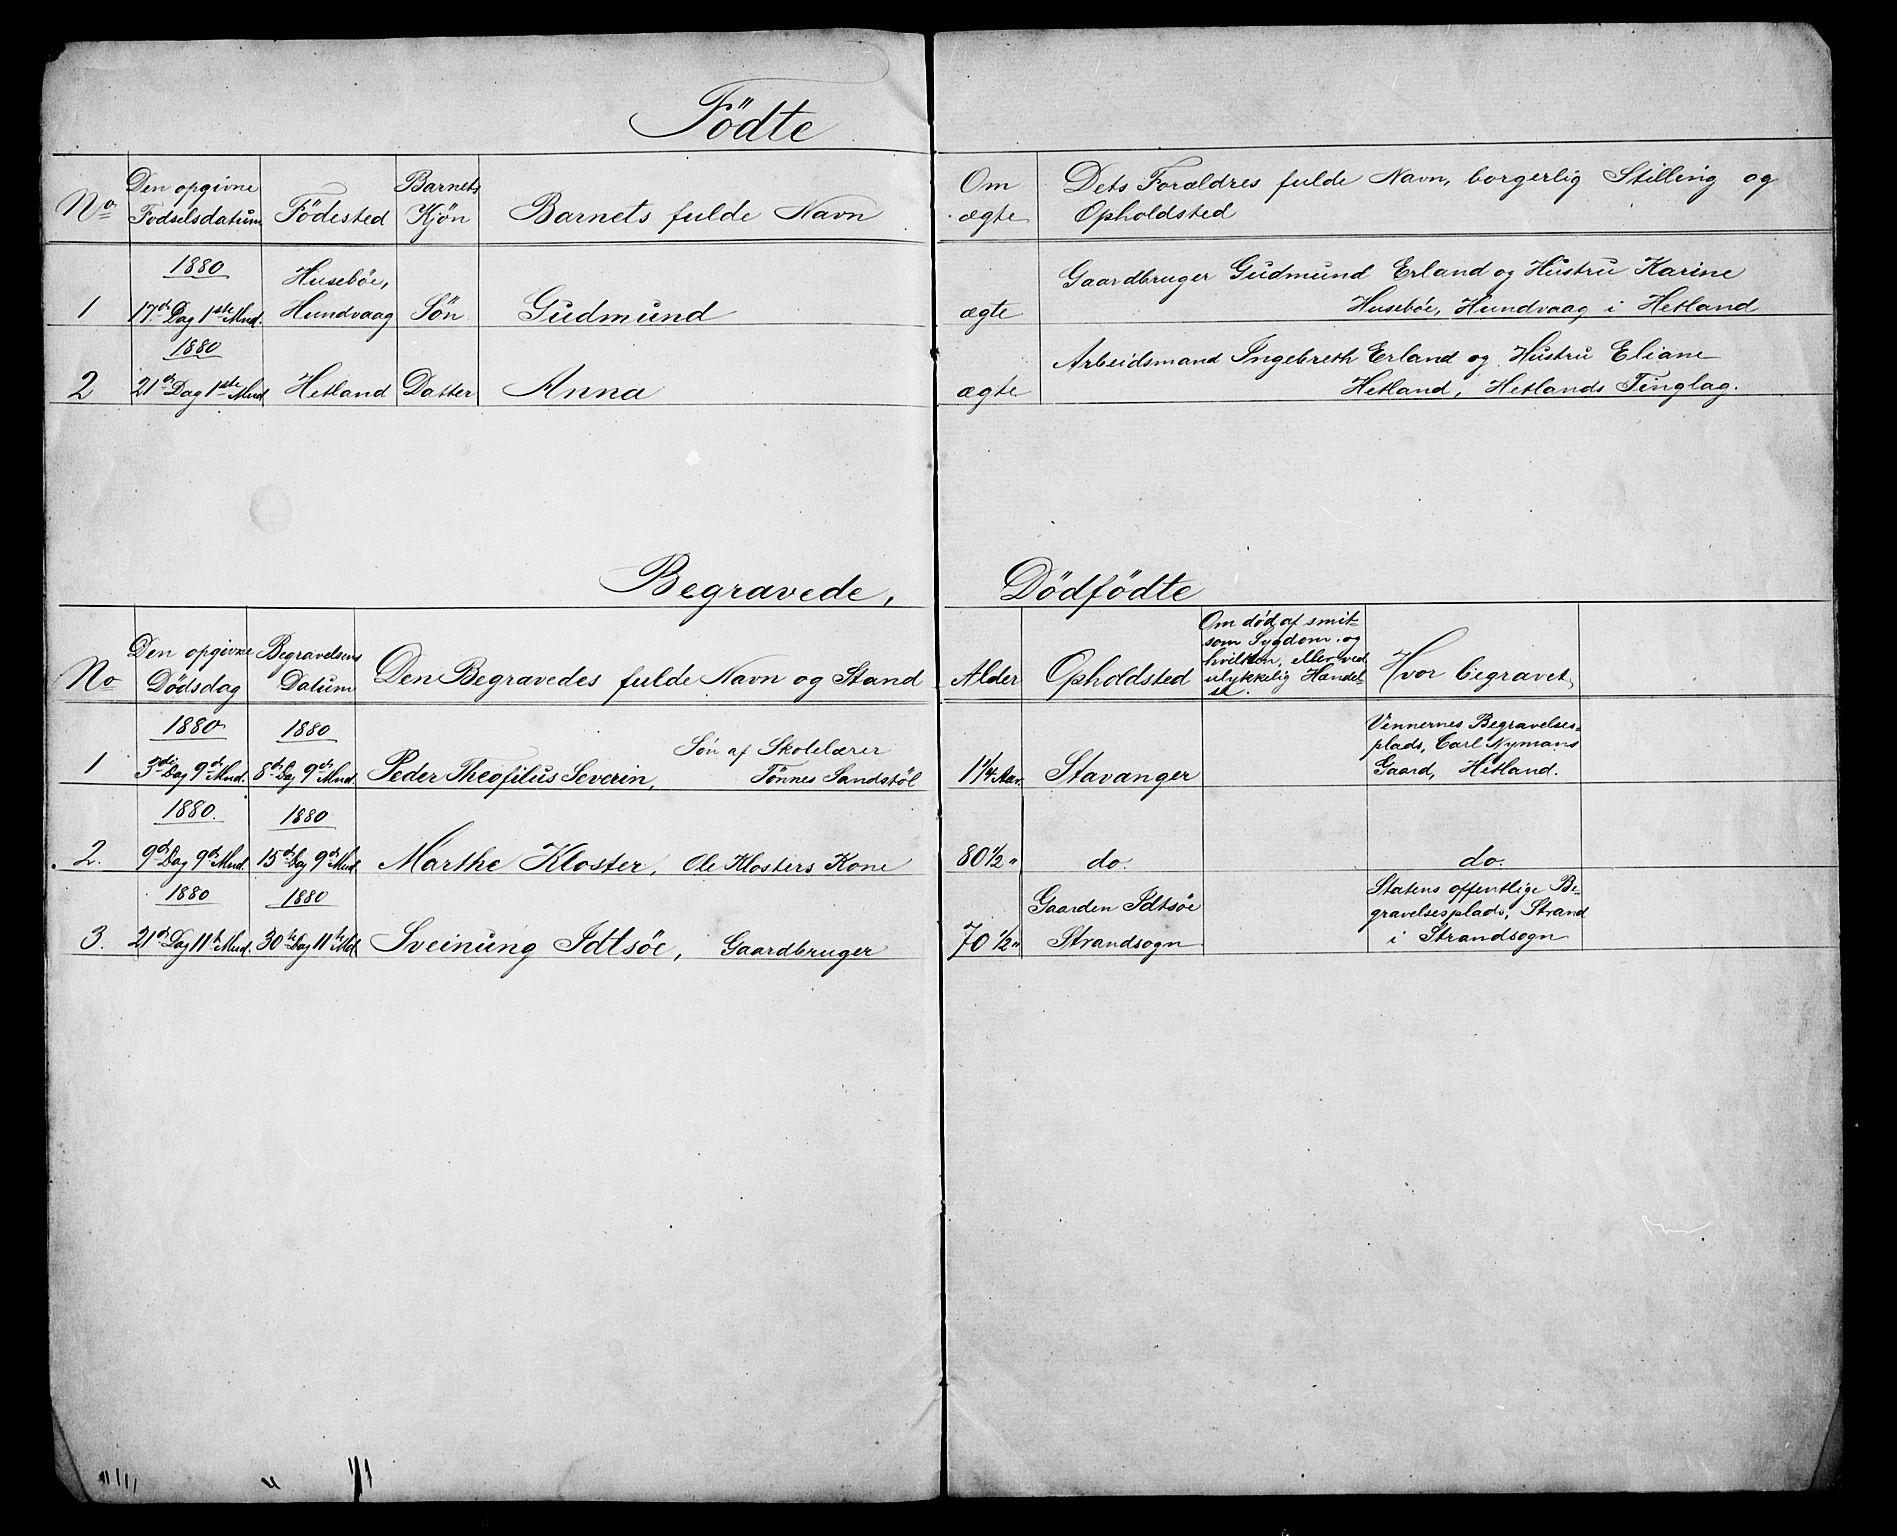 Födte
No Den opgivne Födselsdatum Födested Barnets Kjön Barnets fulde Navn Om ægte Dets Forældres fulde Navn, borgerlig Stilling og Opholdsted
1 1880 17de Dag 1ste Mnd. Huseböe, Hundvaag Sön Gudmund ægte Gaardbruger Gudmund Erland og Hustru Karine
Huseböe, Hundvaag i Hetland
2 1880 21de Dag 1ste Mnd. Hetland Datter Anna ægte Arbeidsmand Ingebreth Erland og Hustru Eliane
Hetland, Hetlands Tinglag.
Begravede, Dödfödte
No Den opgivne Dödsdag Begravelsens Datum Den Begravedes fulde Navn og Stand Alder Opholdsted Om död af smitsom Sygdom og hvilken, eller ved ulykkelig Hændelse. Hvor begravet
1 1880 3die Dag 9de Mnd. 1880 8de Dag 9de Mnd. Peder Theofilus Severin, Sön af Skolelærer Tönnes Sandstöl 1 1/4 Aar. Stavanger Vennernes Begravelsesplads, Carl Nymans Gaard, Hetland.
2. 1880. 9de Dag 9de Mnd. 1880 15de Dag 9de Mnd. Marthe Kloster, Ole Klosters Kone 80 1/2 " do. do.
3. 1880 21de Dag 11te Mnd. 1880 30te Dag 11te Md. Sveinung Idtsöe, Gaardbruger 70 1/2 " Gaarden Idtsöe Strandsogn Statens offentlige Begravelsesplads, Strand i Strandsogn